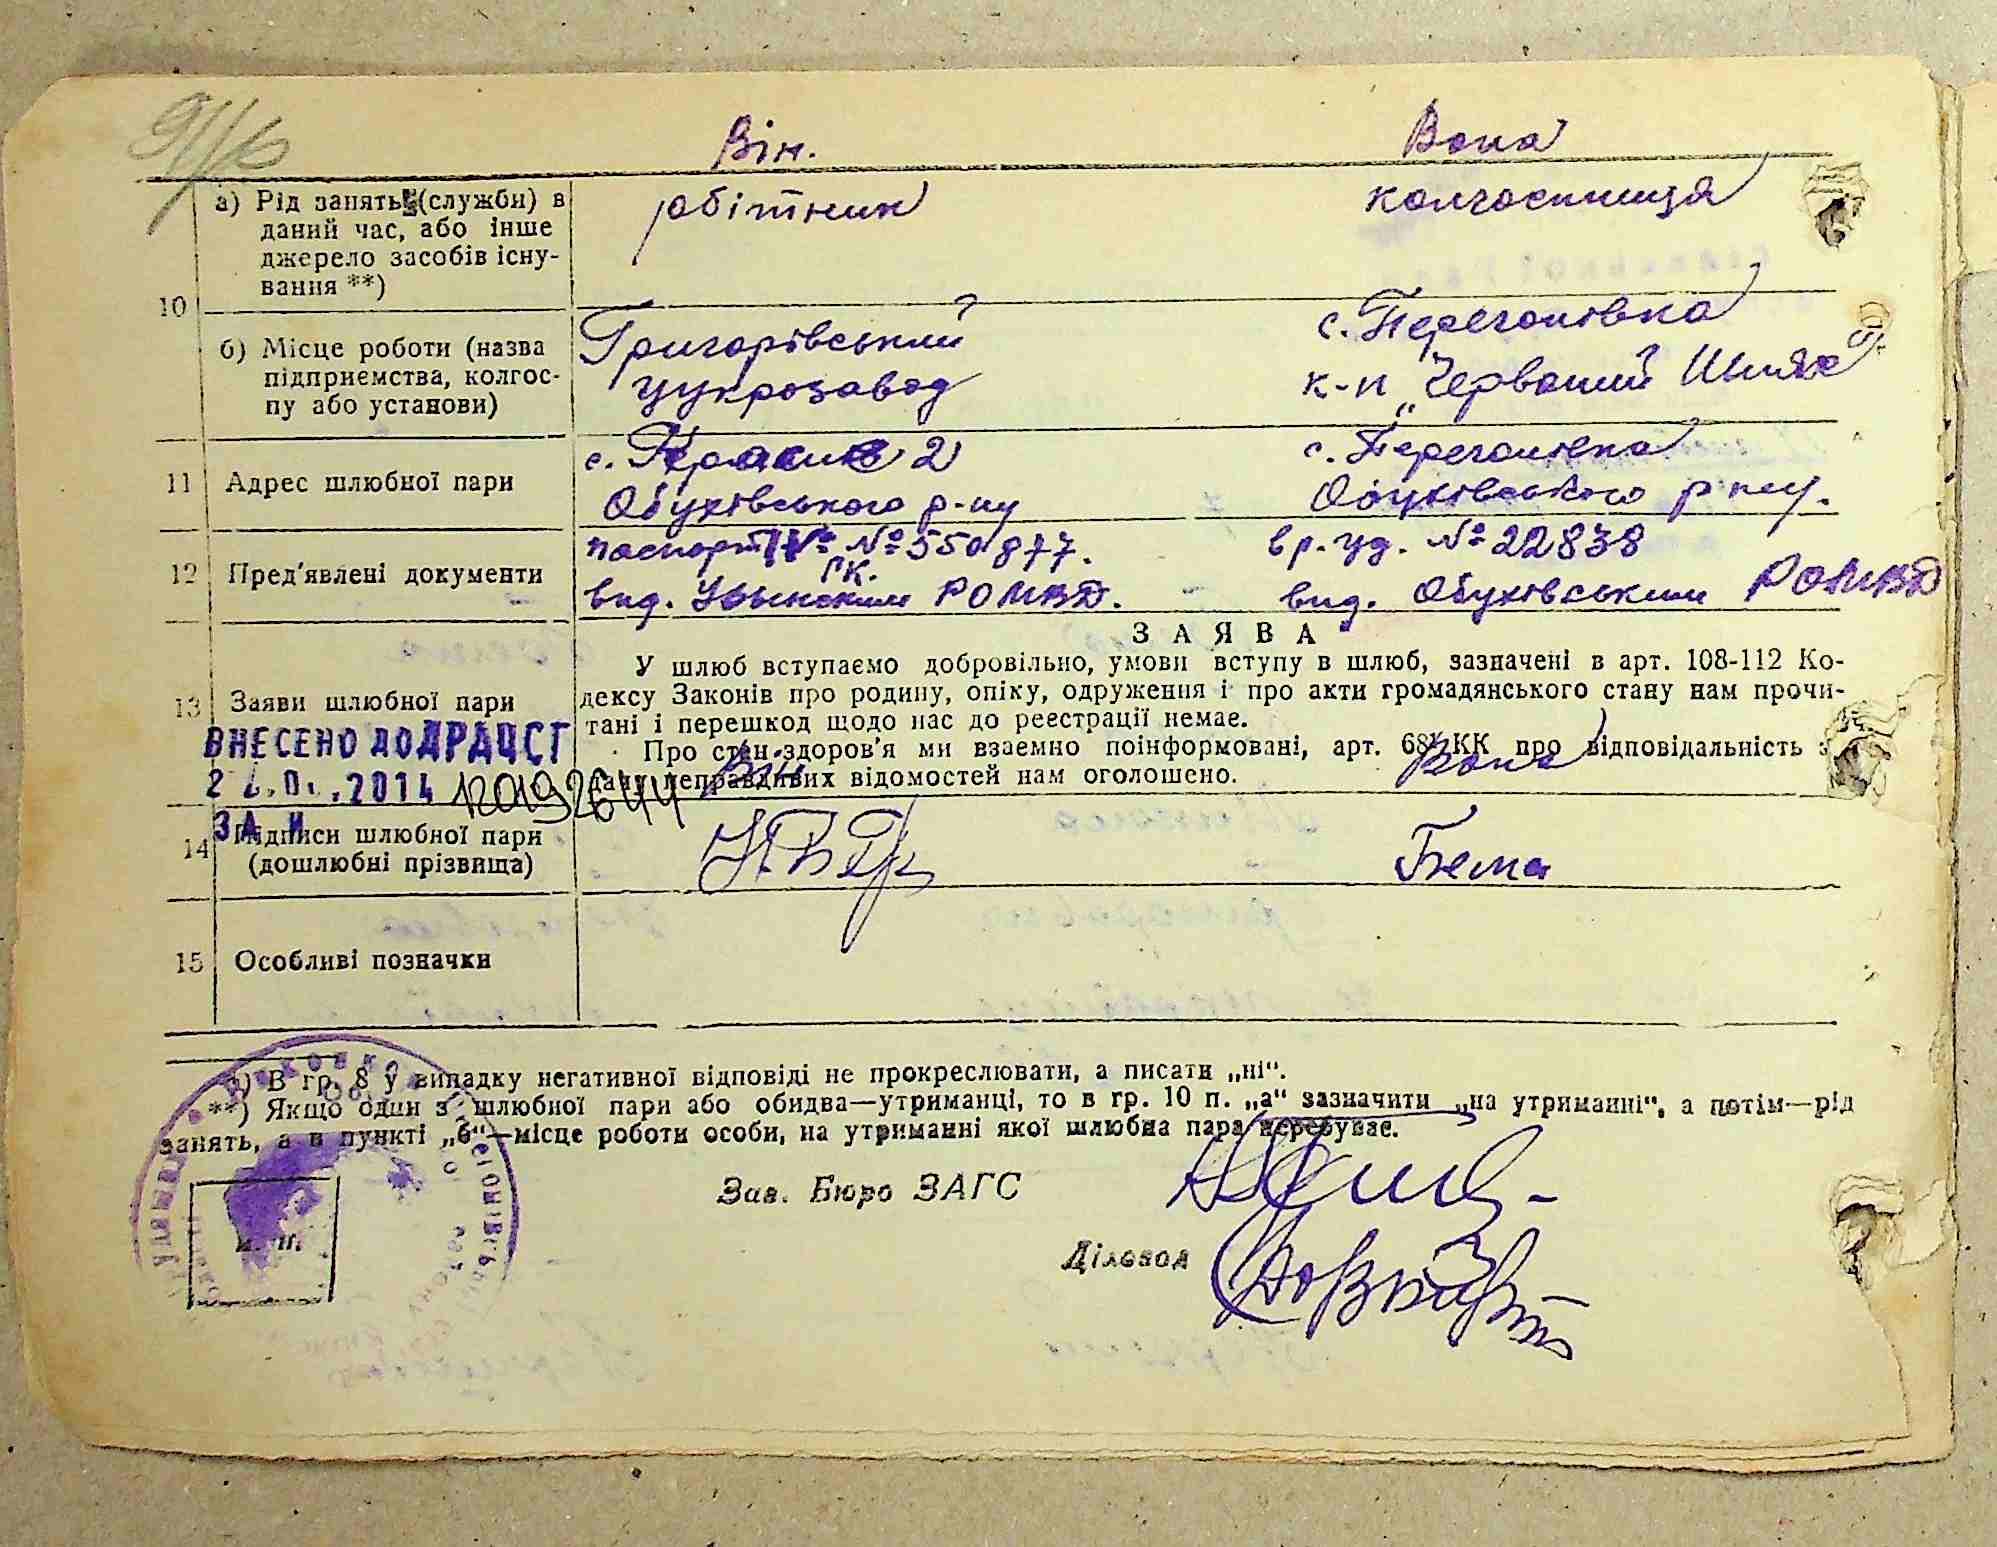 Він.
Вона
10
а) Рід занять (служби) в
даний час, або інше
джерело засобів існу-
вання **)
робітник
колгоспниця
б) Місце роботи (назва
підприємства, колгос-
пу або установи)
Григорівський
цукрозавод
с. Перегонівка
к-п „Червоний Шлях"
11
Адрес шлюбної пари
с. Красне 2
Обухівського р-ну
с. Перегонівка
Обухівського р ну.
12
Пред'явлені документи
паспорт № 550877.
ГК.
вид. РОМВД.
вр. уд. № 22838
вид. Обухівським РОМВД
ЗАЯВА
13
Заяви шлюбної пари
У шлюб вступаємо добровільно, умови вступу в шлюб, зазначені в арт. 108-112 Ко-
дексу Законів про родину, опіку, одруження і про акти громадянського стану нам прочи-
тані і перешкод щодо нас до реєстрації немає.
Про стан здоров'я ми взаємно поінформовані, арт. КК про відповідальність з
дачу неправдивих відомостей нам оголошено.
ВНЕСЕНО ДО ДРАЦСГ
2014
ЗА И
Він
Вона
14
Підписи шлюбної пари
(дошлюбні прізвища)
Бема
15
Особливі позначки
*) В гр. 8 у випадку негативної відповіді не прокреслювати, а писати „ні“.
**) Якщо один з шлюбної пари або обидва—утриманці, то в гр. 10 п. „а“ зазначити „на утриманні“, а потім—рід
занять, а в пункті „б“—місце роботи особи, на утриманні якої шлюбна пара перебуває.
Зав. Бюро ЗАГС
Діловод